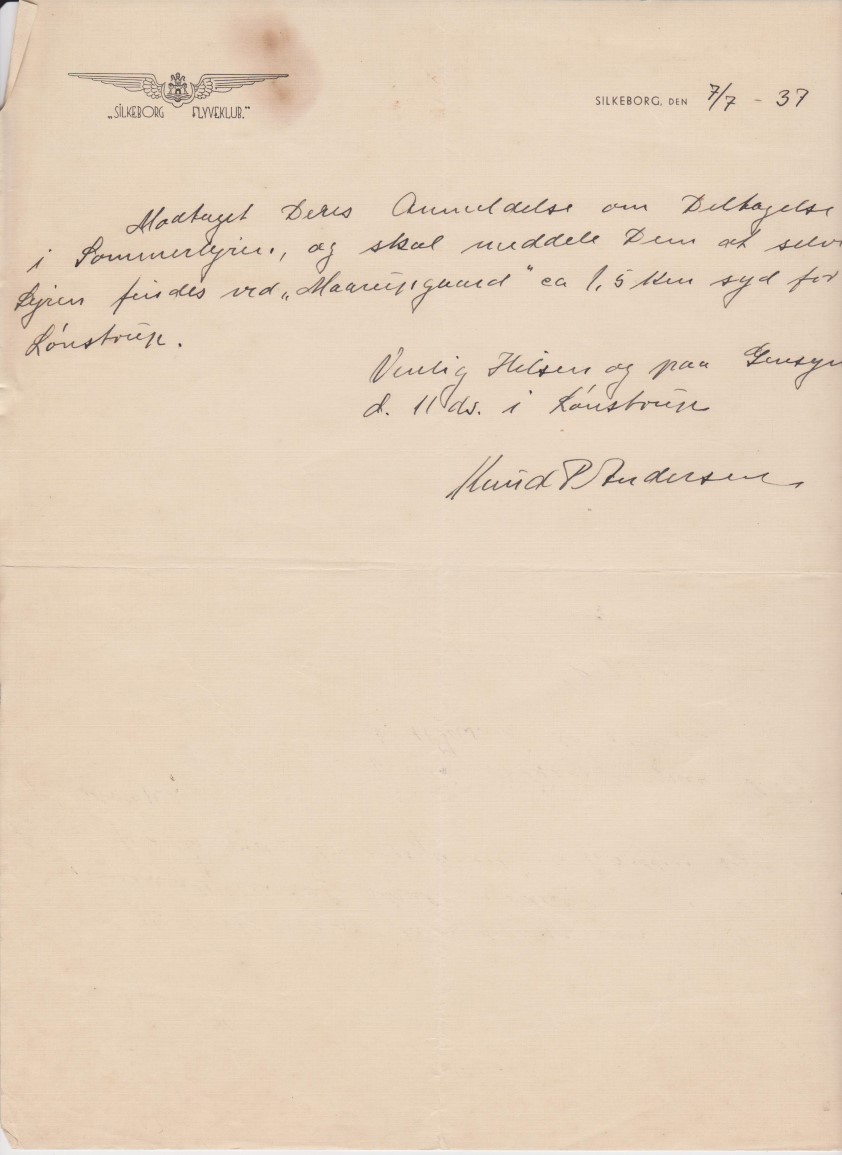 „SILKEBORG FLYVEKLUB."
SILKEBORG, DEN 7/7 - 37
Modtaget Deres Anmeldelse om Deltagelse
i Sommerlejren., og skal meddele Dem at selve
Lejren findes ved „Maarupgaard" ca 1,5 Km syd for
Lønstrup.
Venlig Hilsen og paa Gensyn
d. 11 ds. i Lønstrup
Knud P Andersen